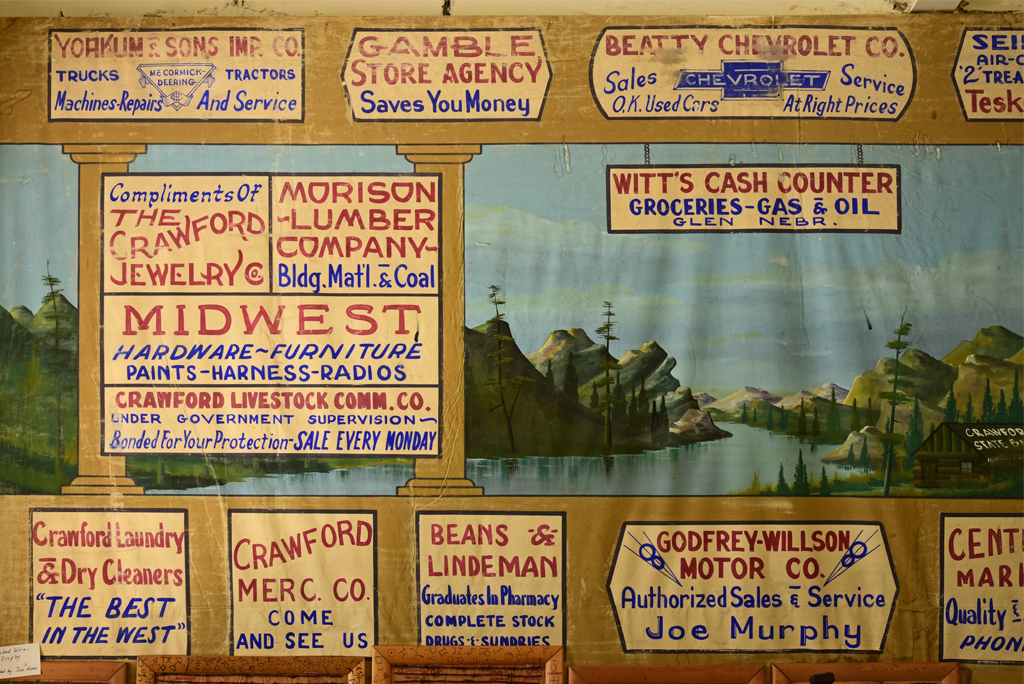 YORKUM & SONS IMP. CO.
TRUCKS McCORMICK- TRACTORS
DEERING
Machines-Repairs And Service
GAMBLE
STORE AGENCY
Saves You Money
BEATTY CHEVROLET CO.
Sales CHEVROLET Service
O.K. Used Cars At Right Prices
AIR-
"2"
Compliments Of
THE
CRAWFORD
JEWELRY Co
MORISON
-LUMBER
COMPANY-
Bldg. Mat'l. & Coal
MIDWEST
HARDWARE~FURNITURE
PAINTS-HARNESS-RADIOS
CRAWFORD LIVESTOCK COMM. CO.
UNDER GOVERNMENT SUPERVISION~
Bonded For Your Protection-SALE EVERY MONDAY
WITT'S CASH COUNTER
GROCERIES-GAS & OIL
GLEN NEBR.
STATE
Crawford Laundry
& Dry Cleaners
"THE BEST
IN THE WEST"
CRAWFORD
MERC. CO.
COME
AND SEE US
BEANS &
LINDEMAN
Graduates In Pharmacy
COMPLETE STOCK
DRUGS & SUNDRIES
GODFREY-WILLSON
MOTOR CO.
V8 V8
Authorized Sales & Service
Joe Murphy
CENT
MAR
Quality &
PHON